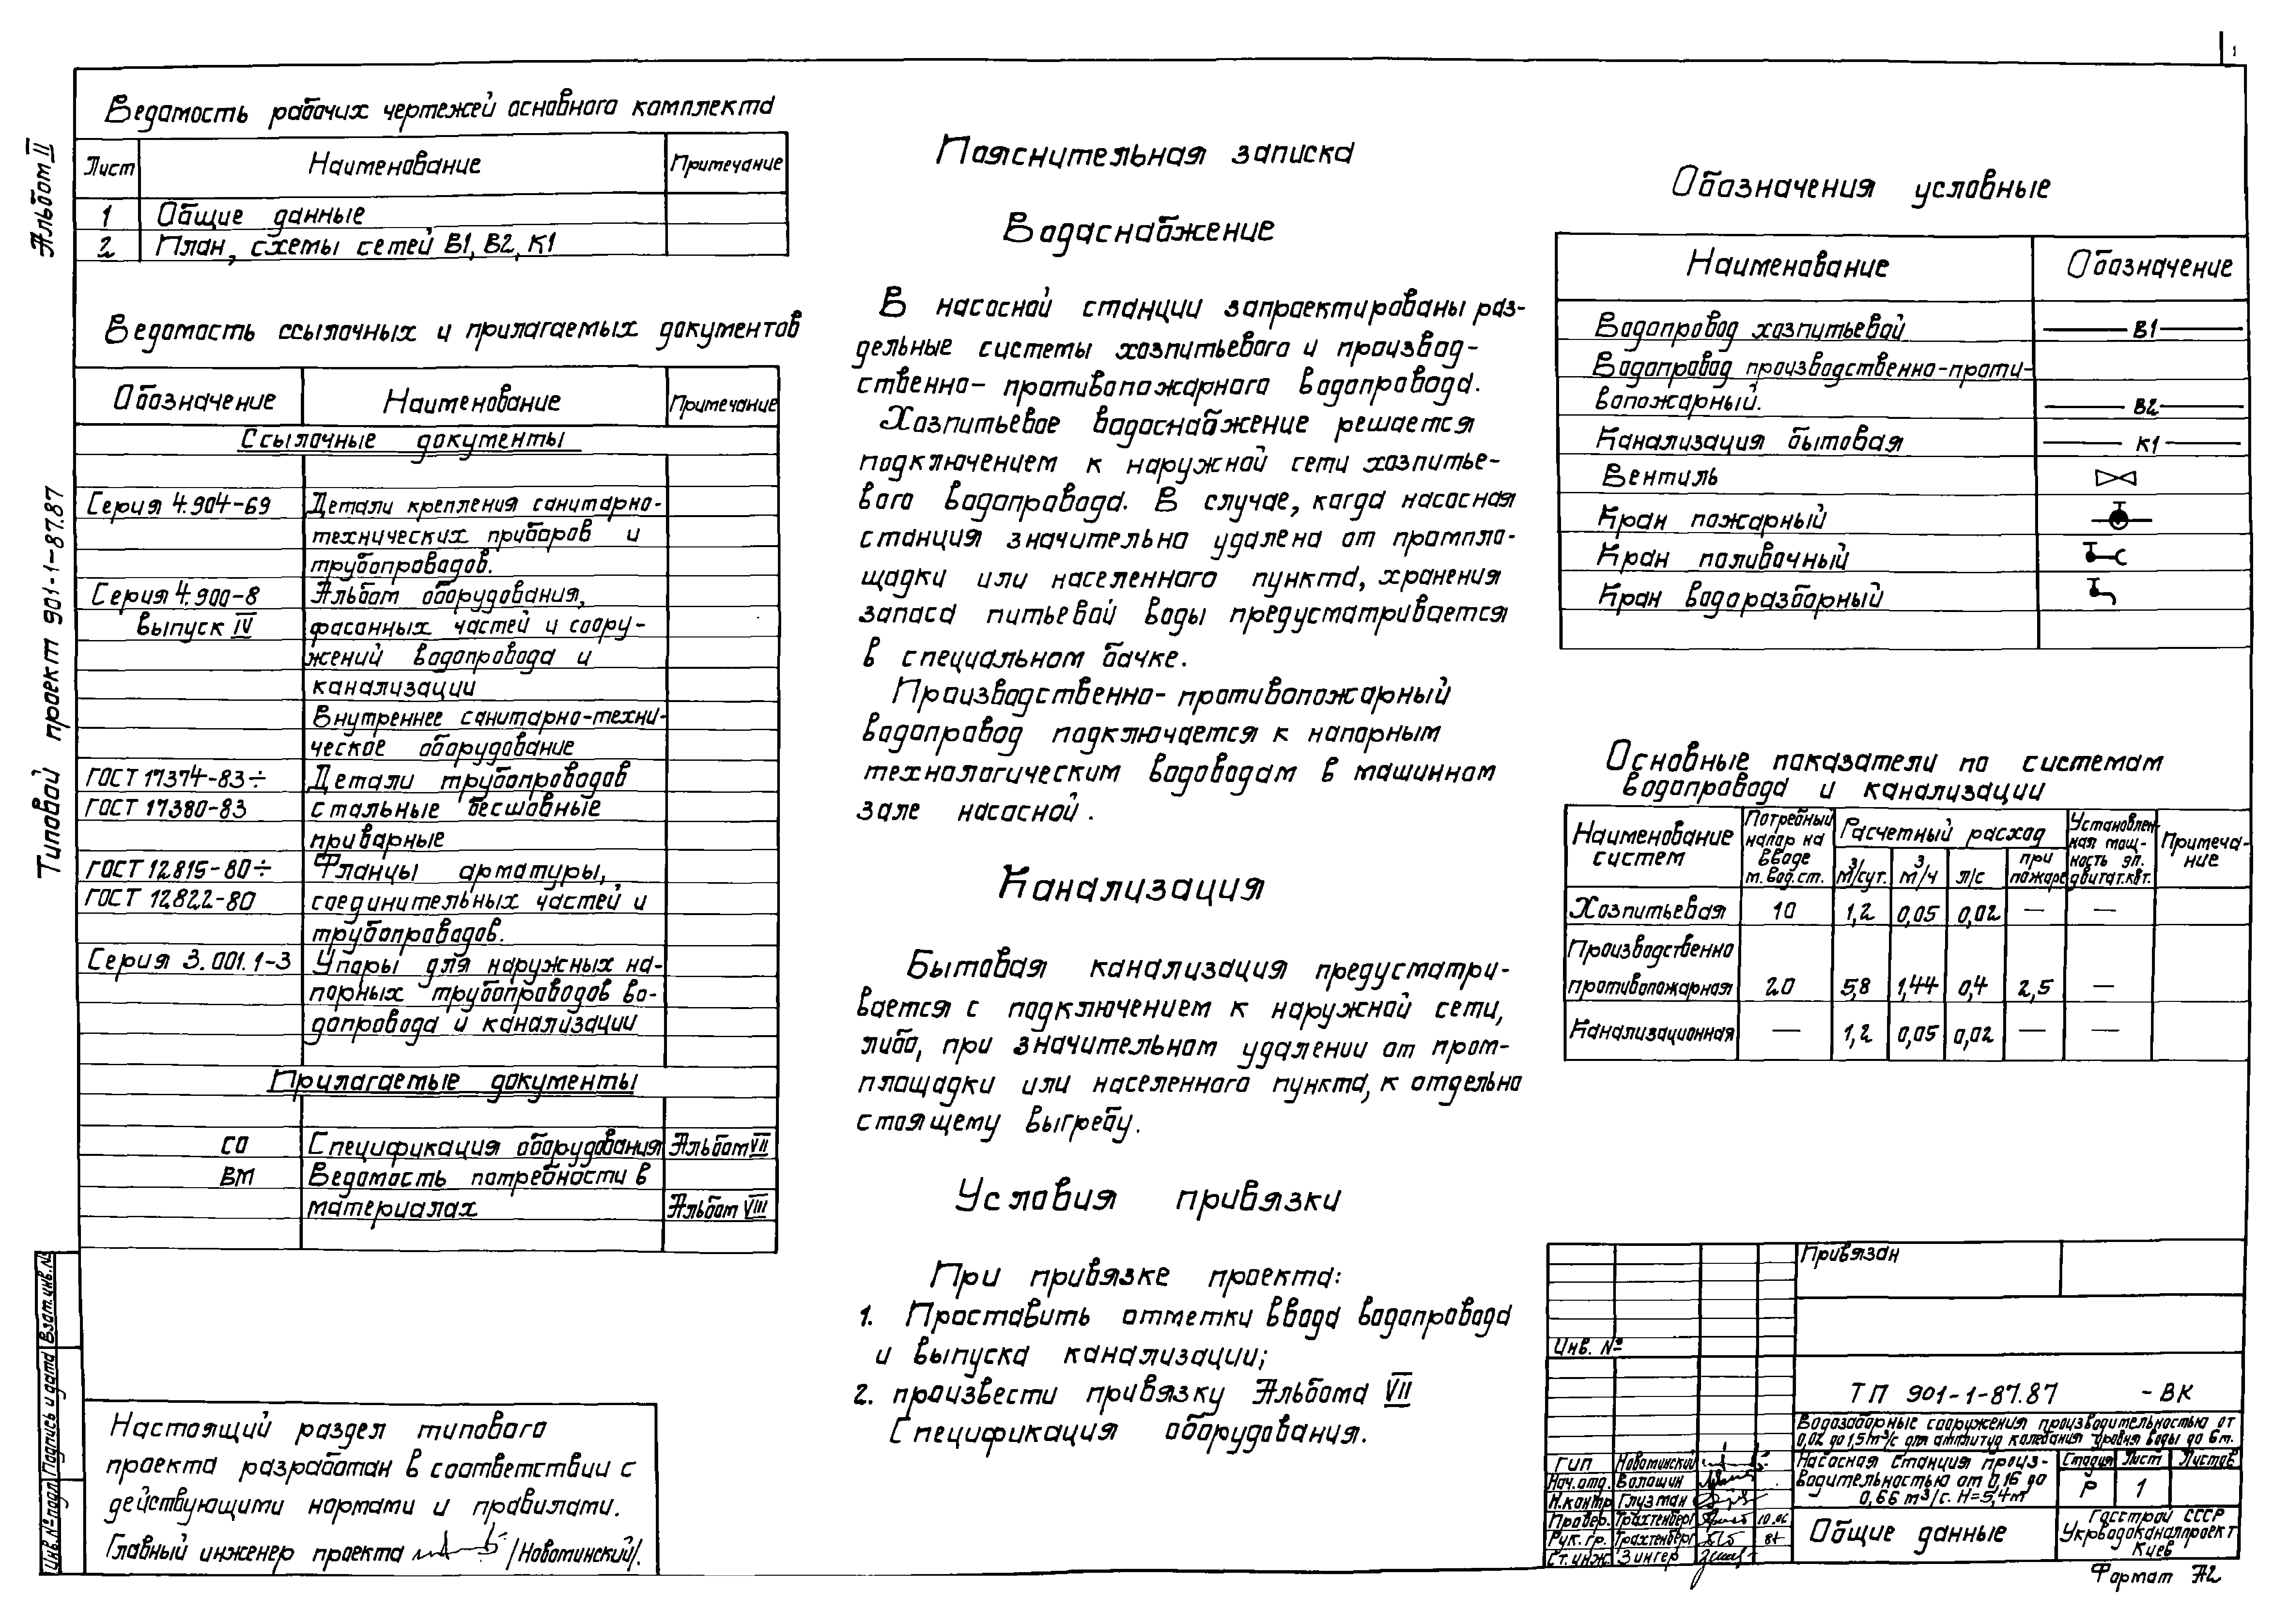 1
Альбом II
Типовой проект 901-1-87.87
Ведомость рабочих чертежей основного комплекта
Лист Наименование Примечание
1 Общие данные
2 План, схемы сетей В1, В2, К1
Ведомость ссылочных и прилагаемых документов
Обозначение Наименование Примечание
Ссылочные документы
Серия 4.904-69 Детали крепления санитарно-
технических приборов и
трубопроводов.
Серия 4.900-8 Альбом оборудования,
Выпуск IV фасонных частей и соору-
жений водопровода и
канализации
Внутреннее санитарно-техни-
ческое оборудование
ГОСТ 17374-83÷ Детали трубопроводов
ГОСТ 17380-83 стальные бесшовные
приварные
ГОСТ 12815-80÷ Фланцы арматуры,
ГОСТ 12822-80 соединительных частей и
трубопроводов.
Серия 3.001.1-3 Упоры для наружных на-
порных трубопроводов во-
допровода и канализации
Прилагаемые документы
СО Спецификация оборудования Альбом VII
ВМ Ведомость потребности в
материалах Альбом VIII
Настоящий раздел типового
проекта разработан в соответствии с
действующими нормами и правилами.
Главный инженер проекта /Новоминский/.
Инв.№ подл. Подпись и дата Взам.инв.№
Пояснительная записка
Водоснабжение
В насосной станции запроектированы раз-
дельные системы хозпитьевого и производ-
ственно- противопожарного водопровода.
Хозпитьевое водоснабжение решается
подключением к наружной сети хозпитье-
вого водопровода. В случае, когда насосная
станция значительно удалена от промпло-
щадки или населенного пункта, хранения
запаса питьевой воды предусматривается
в специальном бачке.
Производственно- противопожарный
водопровод подключается к напорным
технологическим водоводам в машинном
зале насосной.
Канализация
Бытовая канализация предусматри-
вается с подключением к наружной сети,
либо, при значительном удалении от пром-
площадки или населенного пункта, к отдельно
стоящему выгребу.
Условия привязки
При привязке проекта:
1. Проставить отметки ввода водопровода
и выпуска канализации;
2. произвести привязку Альбома VII
Спецификация оборудования.
Обозначения условные
Наименование Обозначение
Водопровод хозпитьевой В1
Водопровод производственно-проти-
вопожарный. В2
Канализация бытовая К1
Вентиль
Кран пожарный
Кран поливочный
Кран водоразборный
Основные показатели по системам
водопровода и канализации
Наименование систем Потребный напор на вводе м.вод.ст. Расчетный расход Установлен- ная мощ- ность эл. двигат.квт. Примеча- ние
м³/сут. м³/ч л/с при пожаре
Хозпитьевая 10 1,2 0,05 0,02 — —
Производственно
противопожарная 20 5,8 1,44 0,4 2,5 —
Канализационная — 1,2 0,05 0,02 — —
Привязан
Инв. №
ТП 901-1-87.87 -ВК
Водозаборные сооружения производительностью от
0,02 до 1,5 м³/с для амплитуд колебания уровня воды до 6 м.
ГИП Новоминский
Нач.отд. Волошин
Н.контр Глузман
Провер. Трахтенберг 10.86
Рук. гр. Трахтенберг 87
Ст.инж. Зингер
Насосная станция произ-
водительностью от 0,16 до
0,66 м³/с. Н=5,4м
Стадия Лист Листов
Р 1
Общие данные
Госстрой СССР
Укрводоканалпроект
Киев
Формат А2